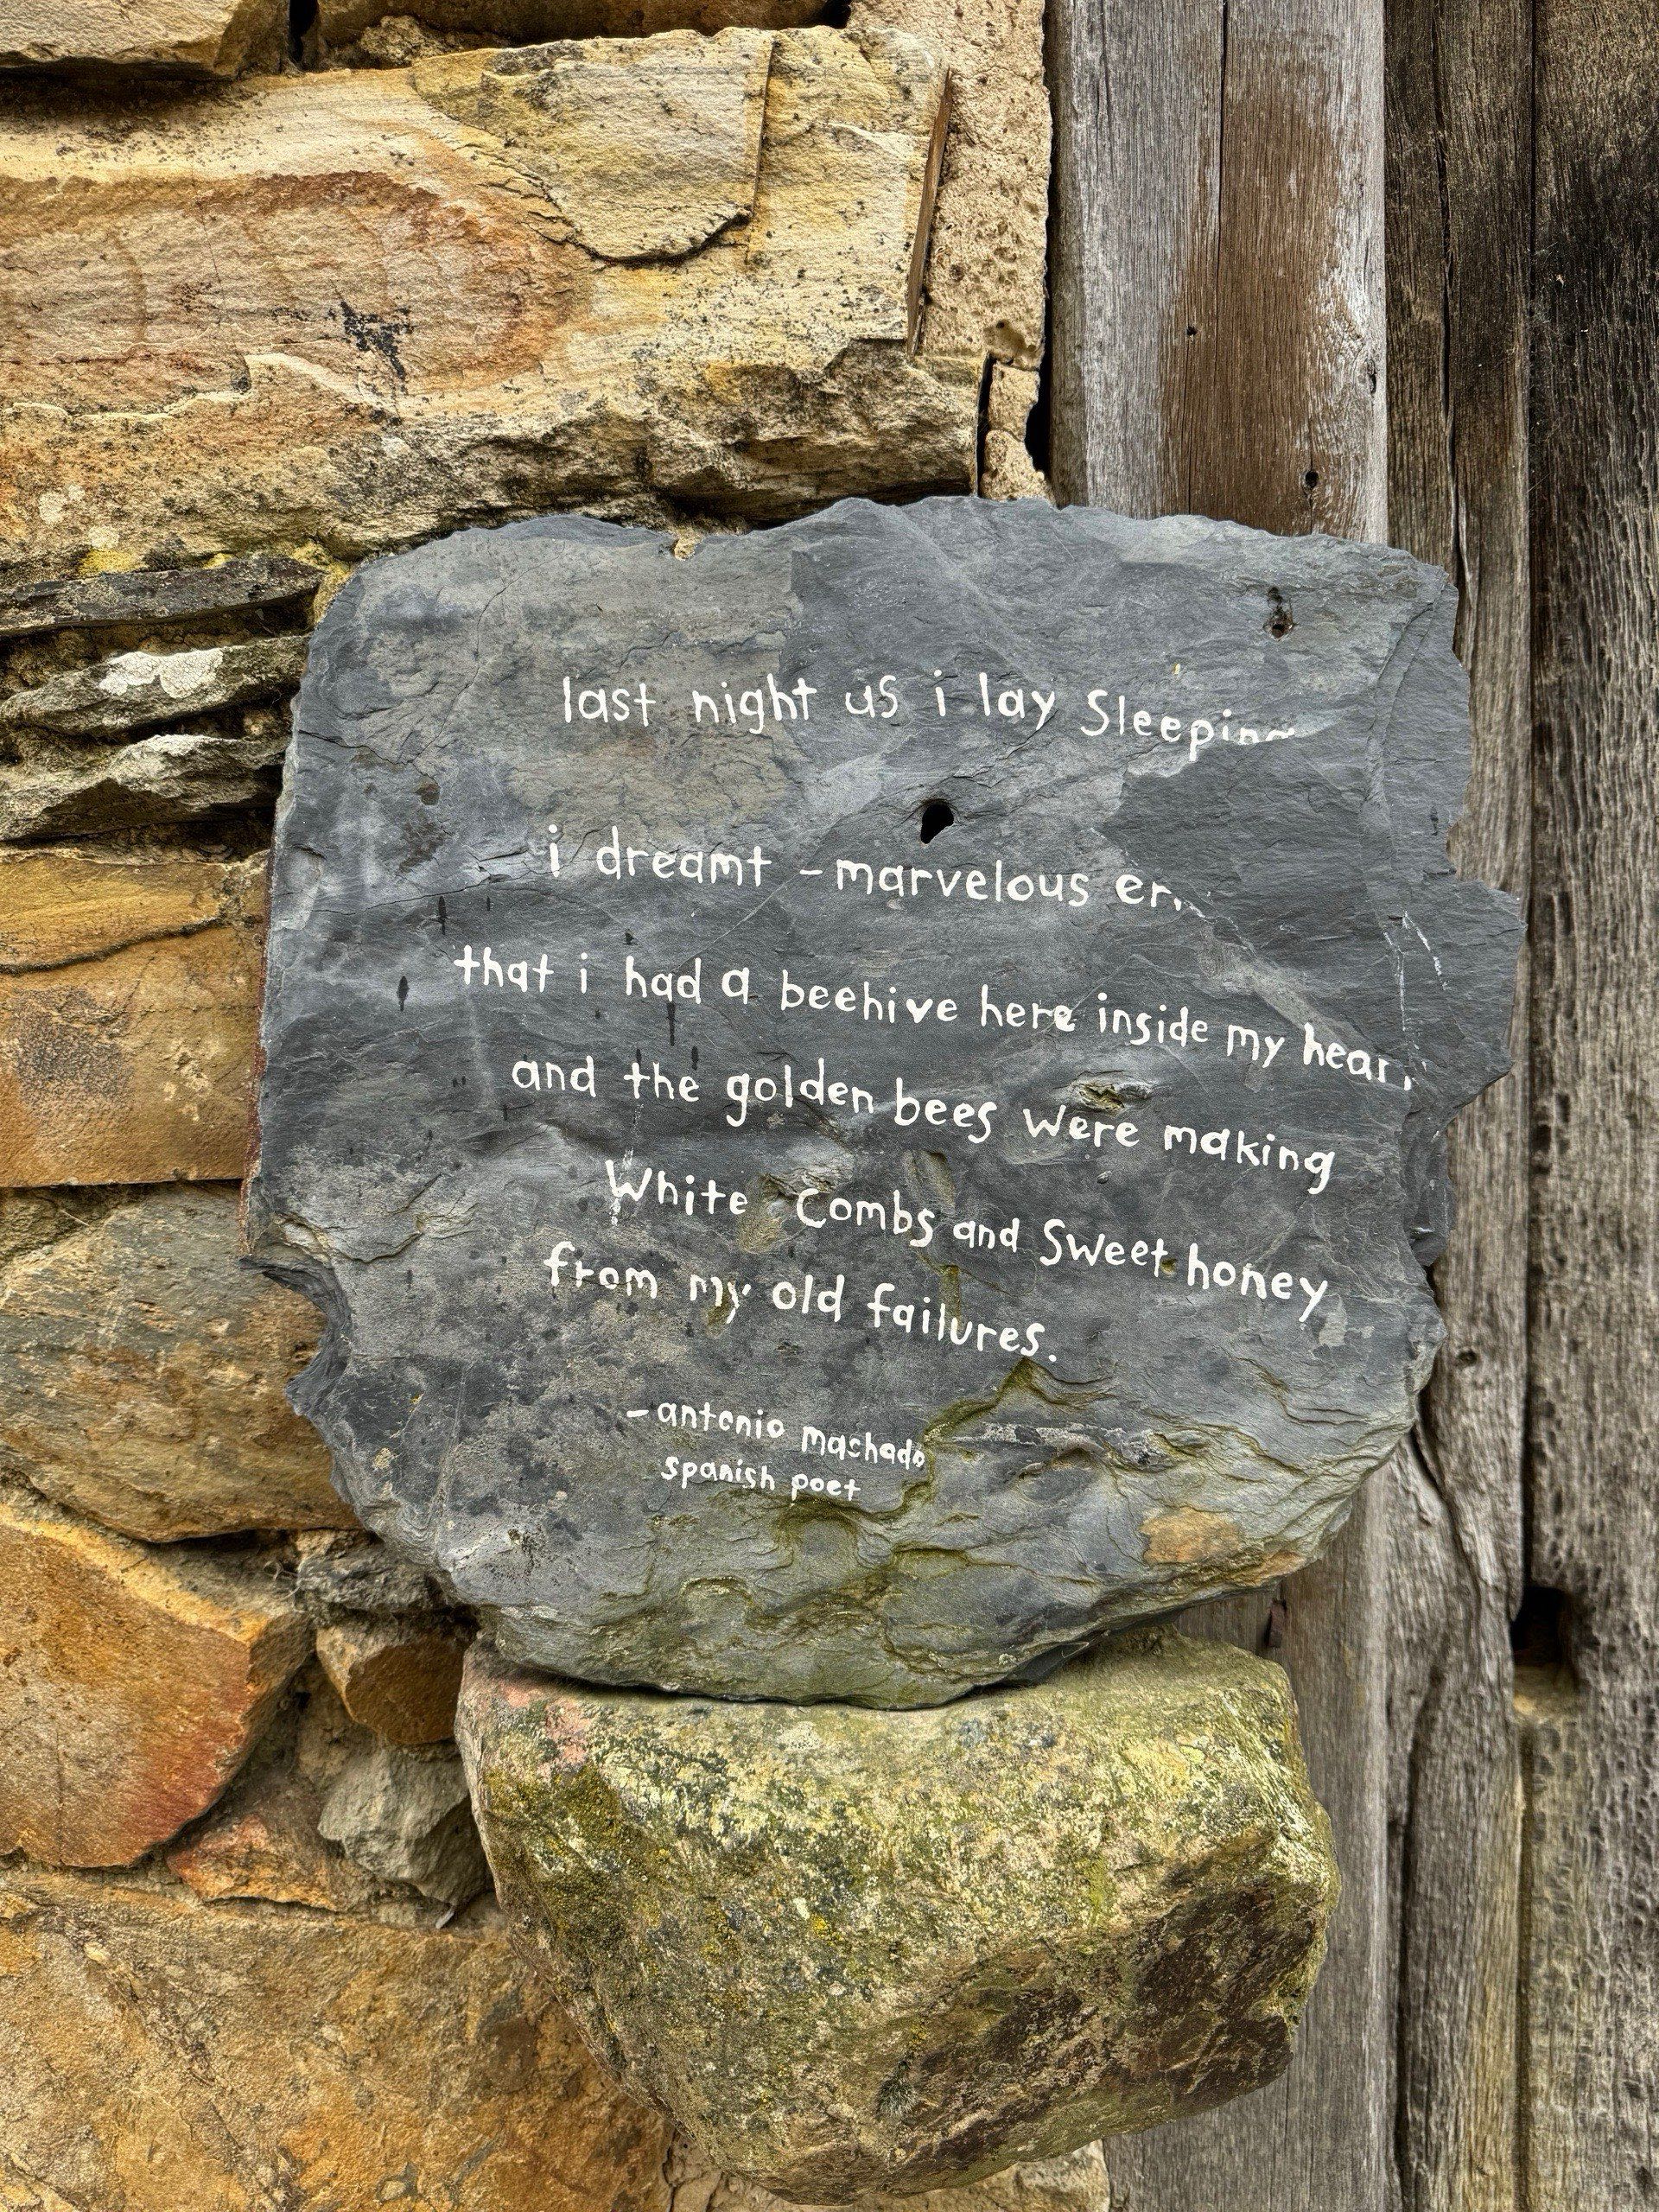 last night us i lay Sleeping
i dreamt - marvelous
that i had a beehive here inside my hear
and the golden bees were making
White Combs and Sweet honey
from my old failures.
- antonio machado
spanish poet